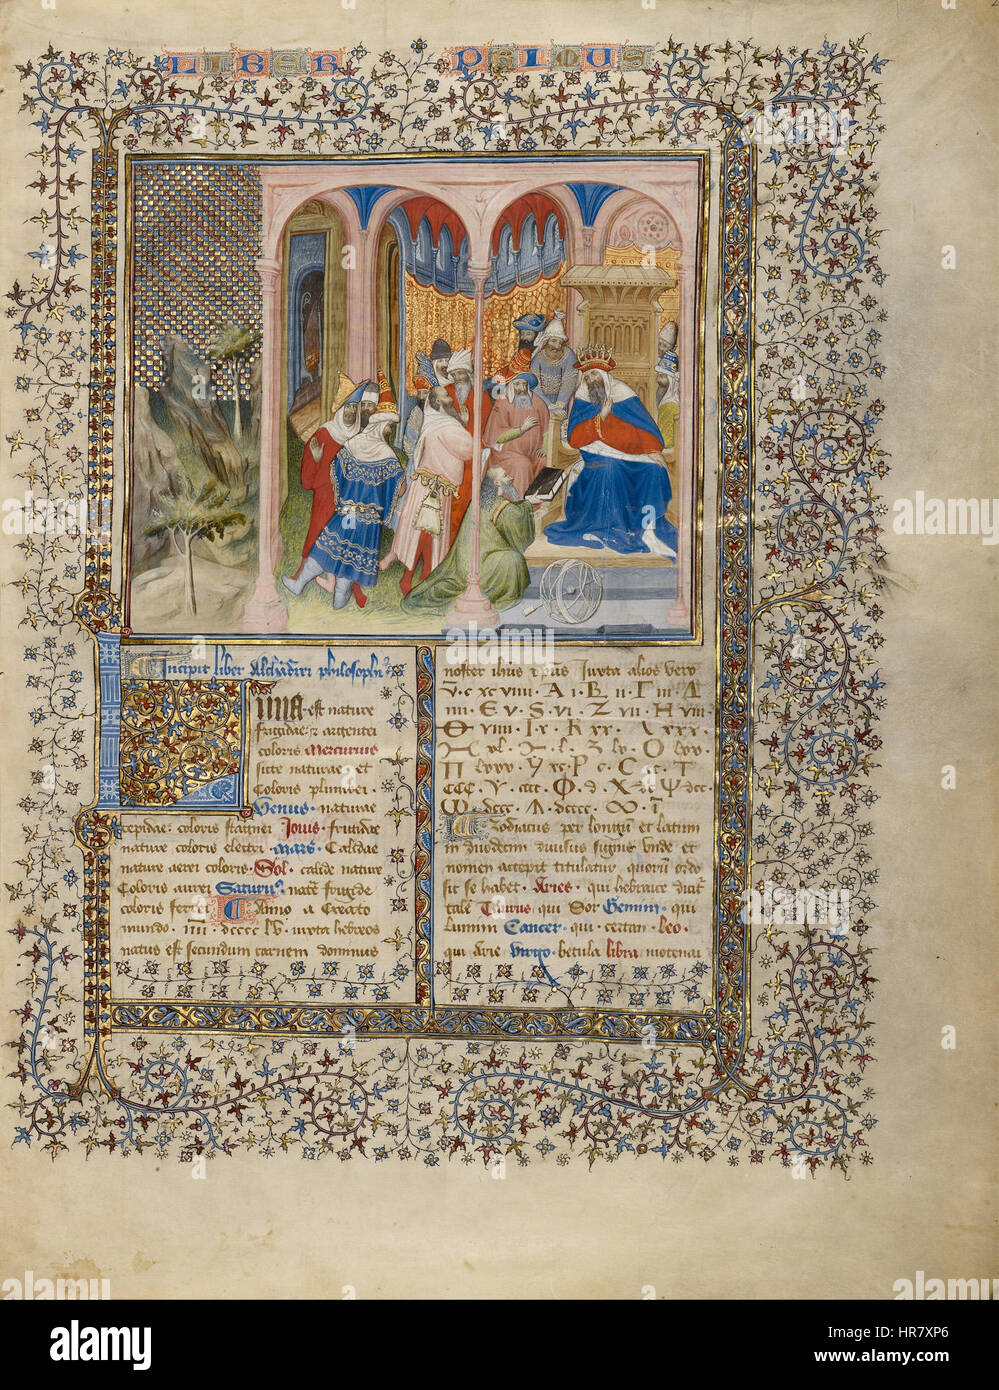 LIBER PRIMUS
Incipit liber Alchādiri philosophi
Luna est nature
frigidae et argentei
coloris Mercurius
siccae naturae et
coloris plumbei
Venus naturae
tepidae coloris stagnei Jovis frigidae
nature coloris electri Mars Calidae
nature aerei coloris Sol calidae nature
Coloris aurei Saturnus nature frigide
coloris ferrei Anno a Creato
mundo IIII DCCCC LV iuxta hebreos
natus est secundum carnem dominus
noster ihus xpus Iuxta alios vero
V C XC VIIII A I B II Γ III Δ
IIII E V S VI Z VII H VIII
Θ VIIII I X K XX Λ XXX
XL L LX O LXX
Π LXXX XC P C C CC T
CCC Y CCC Φ D X DC Ψ DCC
Ω DCCC DCCCC ∞ I
Zodiacus per longum et latum
in duodecim divisus signis unde et
nomen accepit titulatur quorum ordo
sic se habet Aries qui hebraice dicitur
tale Taurus qui Sor Gemini qui
Lumim Cancer qui certan Leo
qui Arie Virgo betula libra
alamy
alamy stock photo
HR7XP6
www.alamy.com